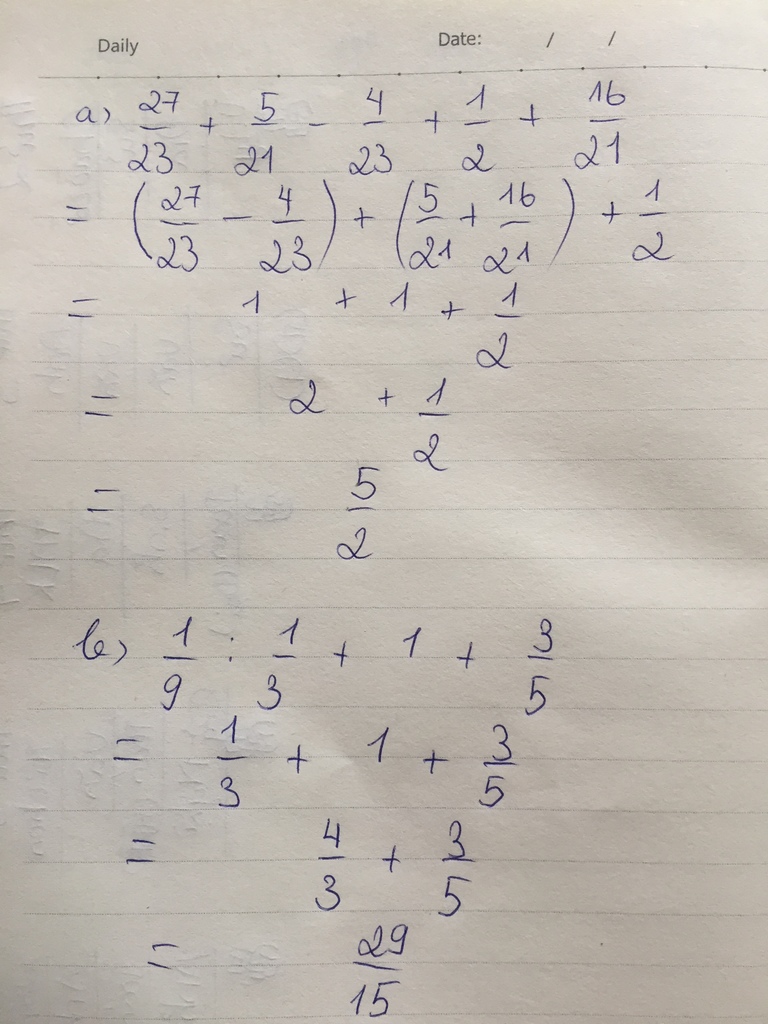 Daily Date: / /
a) 27/23 + 5/21 - 4/23 + 1/2 + 16/21
= (27/23 - 4/23) + (5/21 + 16/21) + 1/2
= 1 + 1 + 1/2
= 2 + 1/2
= 5/2
b) 1/9 : 1/3 + 1 + 3/5
= 1/3 + 1 + 3/5
= 4/3 + 3/5
= 29/15